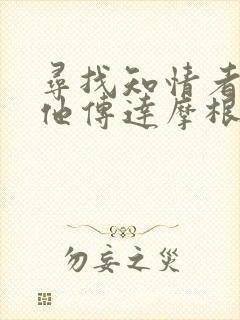 尋找知情者
他傳達摩根
勿妄之災